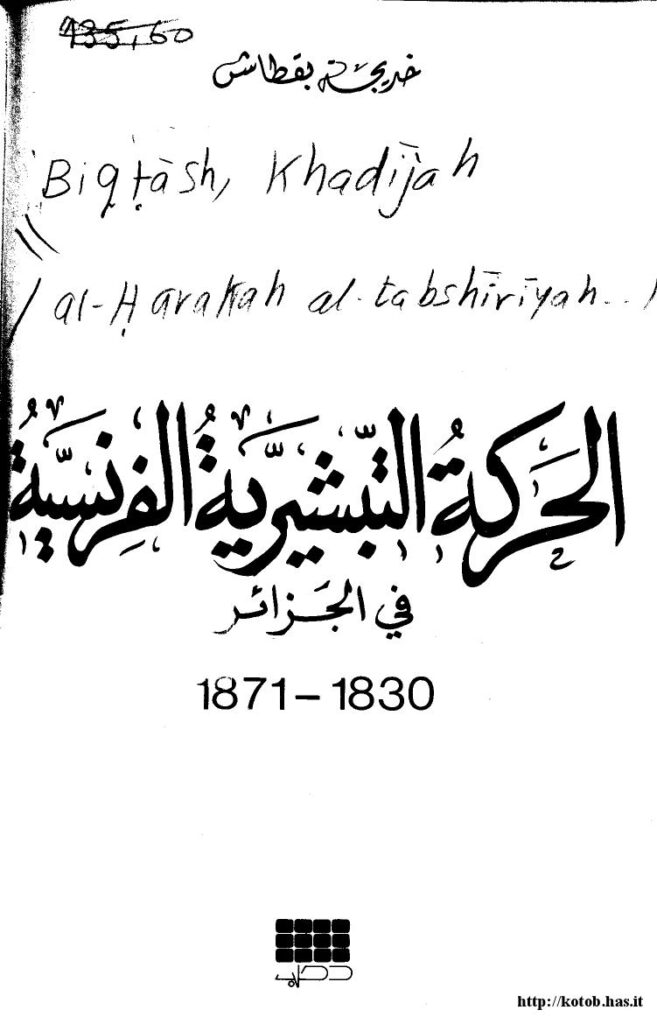 135,60
خديجة بقطاش
Biqṭāsh, Khadījah
/ al-Ḥarakah al-tabshīrīyah.. /
الحَركَةُ التَّبشيريَّةُ الفِرنسيَّةُ
في الجَزائر
1871 – 1830
دحلب
http://kotob.has.it